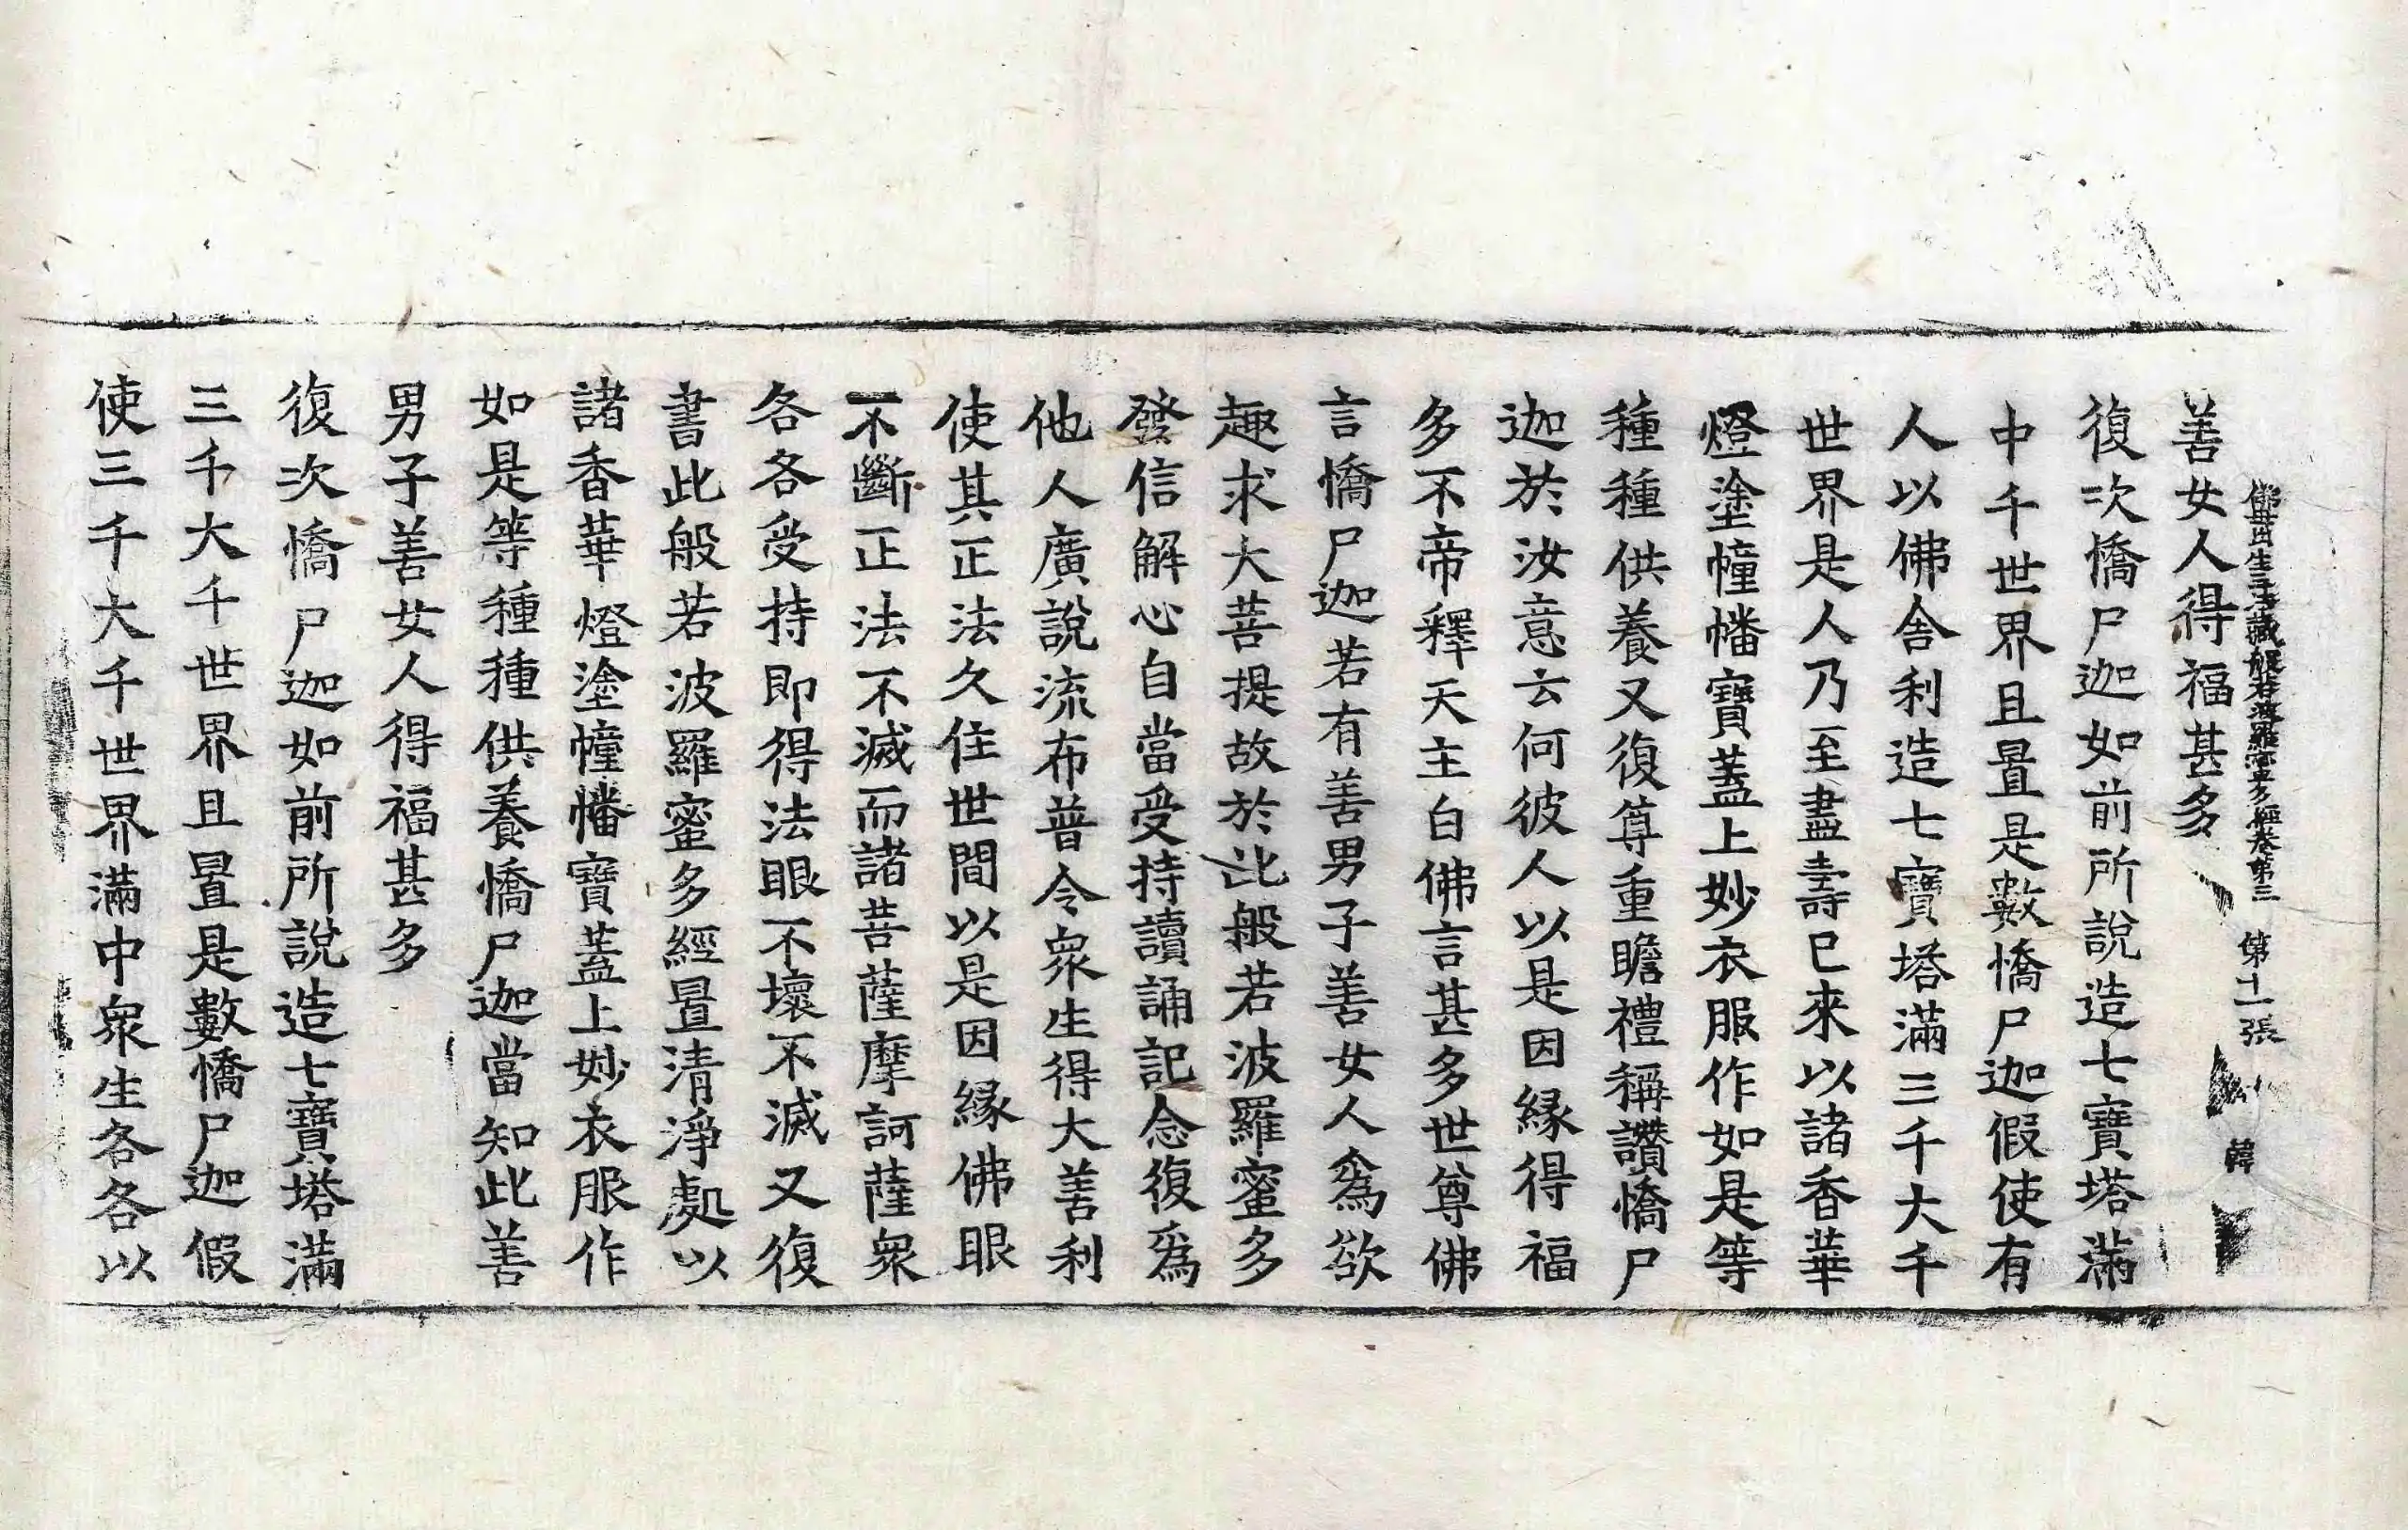 佛母出生三法藏般若波羅蜜多經卷第三 第十一張 韓
善女人得福甚多
復次憍尸迦如前所說造七寶塔滿
中千世界且置是數憍尸迦假使有
人以佛舍利造七寶塔滿三千大千
世界是人乃至盡壽已來以諸香華
燈塗幢幡寶蓋上妙衣服作如是等
種種供養又復尊重瞻禮稱讚憍尸
迦於汝意云何彼人以是因緣得福
多不帝釋天主白佛言甚多世尊佛
言憍尸迦若有善男子善女人為欲
趣求大菩提故於此般若波羅蜜多
發信解心自當受持讀誦記念復為
他人廣說流布普令眾生得大善利
使其正法久住世間以是因緣佛眼
不斷正法不滅而諸菩薩摩訶薩眾
各各受持即得法眼不壞不滅又復
書此般若波羅蜜多經置清淨處以
諸香華燈塗幢幡寶蓋上妙衣服作
如是等種種供養憍尸迦當知此善
男子善女人得福甚多
復次憍尸迦如前所說造七寶塔滿
三千大千世界且置是數憍尸迦假
使三千大千世界滿中眾生各各以